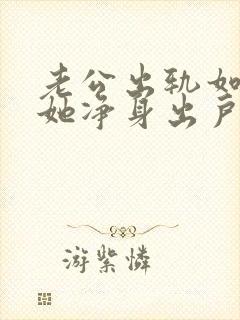 老公出轨如
她净身出户
游紫怜